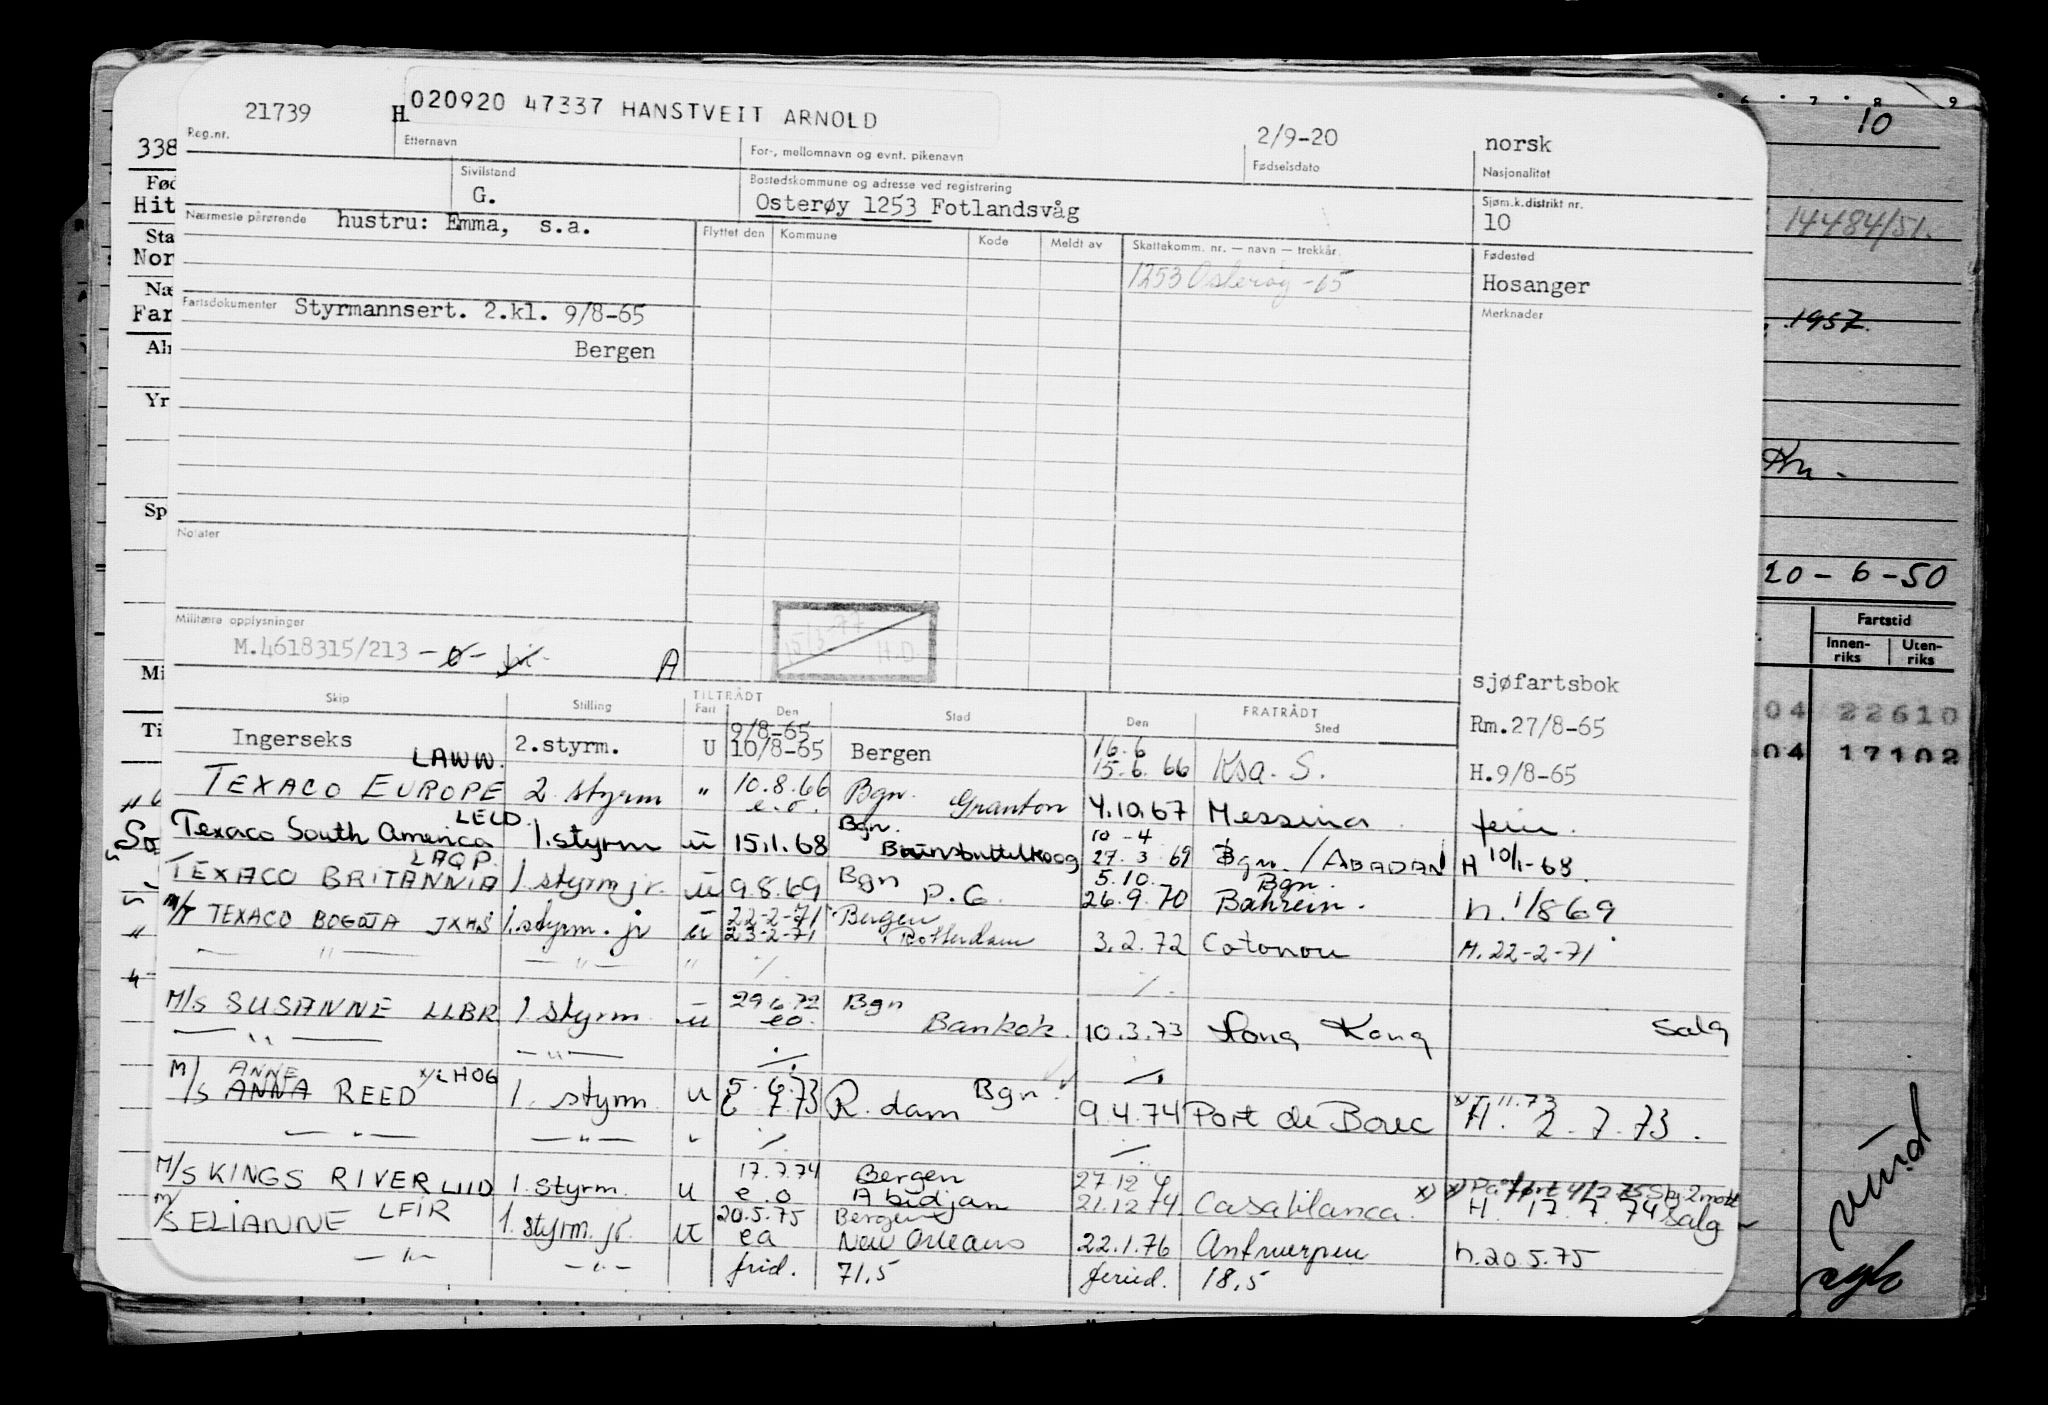 21739 H 020920 47337 HANSTVEIT ARNOLD 2/9-20 norsk
Reg.nr. Etternavn For-, mellomnavn og evnt. pikenavn Fødselsdato Nasjonalitet
Sivilstand Bostedskommune og adresse ved registrering Sjøm.k.distrikt nr.
G. Osterøy 1253 Fotlandsvåg 10
Nærmeste pårørende hustru: Emma, s.a.
Flyttet den Kommune Kode Meldt av Skattekomm. nr. — navn — trekkår. Fødested
1253 Osterøy -65 Hosanger
Fartsdokumenter Styrmannsert. 2.kl. 9/8-65 Merknader
Bergen
Notater
Militære opplysninger
M.4618315/213 A
15/3-77 H.D.
sjøfartsbok
Skip Stilling TILTRÅDT Fart Den Sted FRATRÅDT Den Sted
Rm.27/8-65
9/8-65 16.6
Ingerseks 2.styrm. U 10/8-65 Bergen 15.6.66 Ksa. S.
H.9/8-65
LAWW.
TEXACO EUROPE 2 styrm " 10.8.66 e.o. Bgn. Granton 4.10.67 Messina ferie.
LELD.
Texaco South America 1.styrm u 15.1.68 Bgn. Brunsbuttelkoog 10-4 27.3.69 Bgn./ABADAN H 10/1-68.
LAQP.
TEXACO BRITANNIA 1 styrm jr. u 9.8.69 Bgn P.G. 5.10. 26.9.70 Bgn. Bahrein. h. 1/8 69
M/T TEXACO BOGOTA JXHS 1.styrm. jr u 22-2-71 23-2-71 Bergen Rotterdam 3.2.72 Cotonou H. 22-2-71
— " — — " — " ./. ./.
M/S SUSANNE LLBR 1 styrm. u 29.6.72 eo. Bgn Bankok. 10.3.73 Hong Kong Salg
— " — — " — ./. ./.
M/S ANNE ANNA REED x) LHOG 1. styrm. u 5.7.73 6 7 73 R.dam Bgn. 9.4.74 Port de Bouc x) 7.11.73 H. 2.7.73.
— " — — " — " ./. ./.
M/S KINGS RIVER LIID 1. styrm. u 17.7.74 e.o Bergen Abidjan 27.12 4 21.12 74 Casablanca. x) H. 17.7.74 Salg
M/S ELIANNE LFIR 1. styrm. jr. u 20.5.75 ea Bergen New Orleans 22.1.76 Antwerpen h.20 5.75
— " — — " — frid. 71,5 feried. 18,5
338
Fød
Hit
Sta
Nor
Næ
Far
Alm
Yr
Sp
Mi
Ti
6 7 8 9
10
14484/51.
1957.
20-6-50
Fartstid
Innenriks Utenriks
04 22610
04 17102